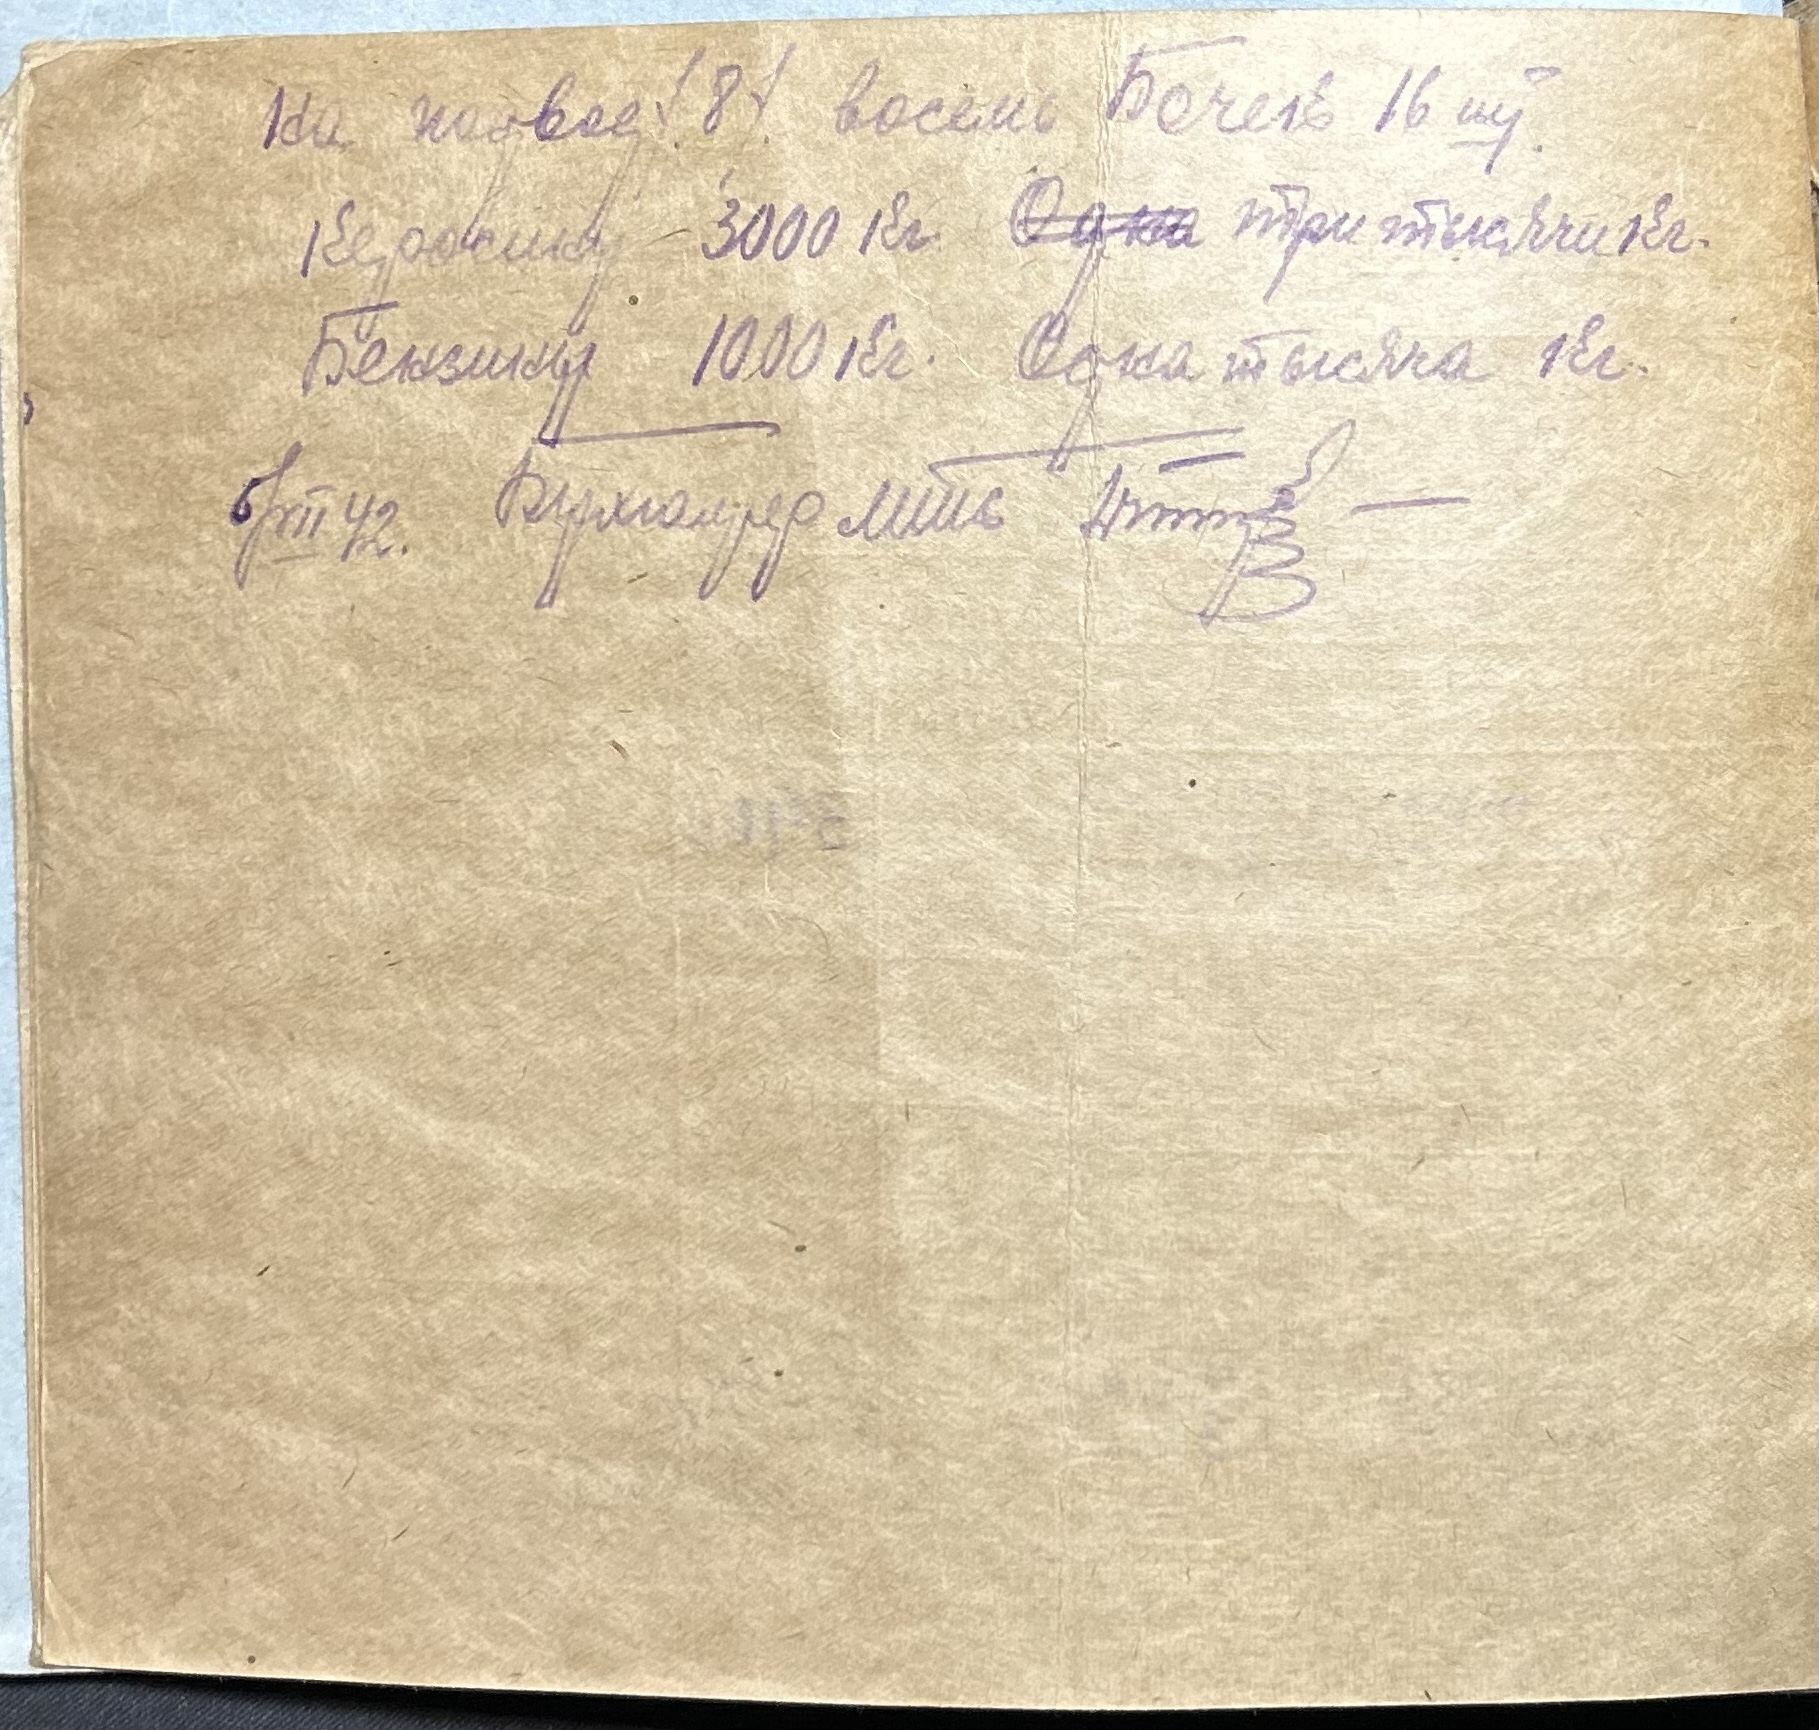 На подвод (8) восемь Бочек 16 шт.
Керосину 3000 Кг. Одна три тысячи Кг.
Бензину 1000 Кг. Одна тысяча Кг.
6/XII 42. Бухгалтер